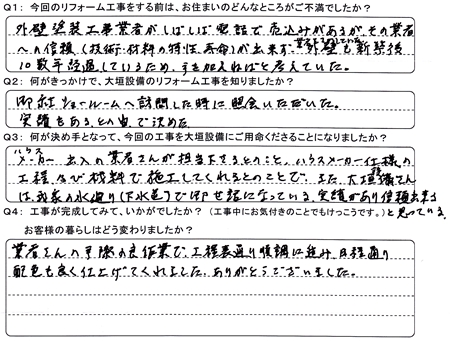 Q1: 今回のリフォーム工事をする前は、お住まいのどんなところがご不満でしたか？
外壁塗装工事業者がしばしば電話で売込みがあるが、その業者
への信頼(技術・材料の特性、寿命)が出来ず、外壁も新築後
10数年経過しているため、手を加えねばと考えていた。
Q2: 何がきっかけで、大垣設備のリフォーム工事を知りましたか？
御社ショールームへ訪問した時に照会いただいた。
実績もあるとの事で決めた
Q3: 何が決め手となって、今回の工事を大垣設備にご用命くださることになりましたか？
ハウス
メーカー出入の業者さんが担当するとのこと、ハウスメーカー仕様の
工程及び材料で施工してくれるとのことで、また大垣設備さん
は我家の水廻り(下水道)で御世話になっている実績があり信頼出来る
と思っている。
Q4: 工事が完成してみて、いかがでしたか？（工事中にお気付きのことでもけっこうです。）
お客様の暮らしはどう変わりましたか？
業者さんの手際の良い作業で、工程表通り順調に進み、日程通り
配色も良く仕上げてくれました。ありがとうございました。